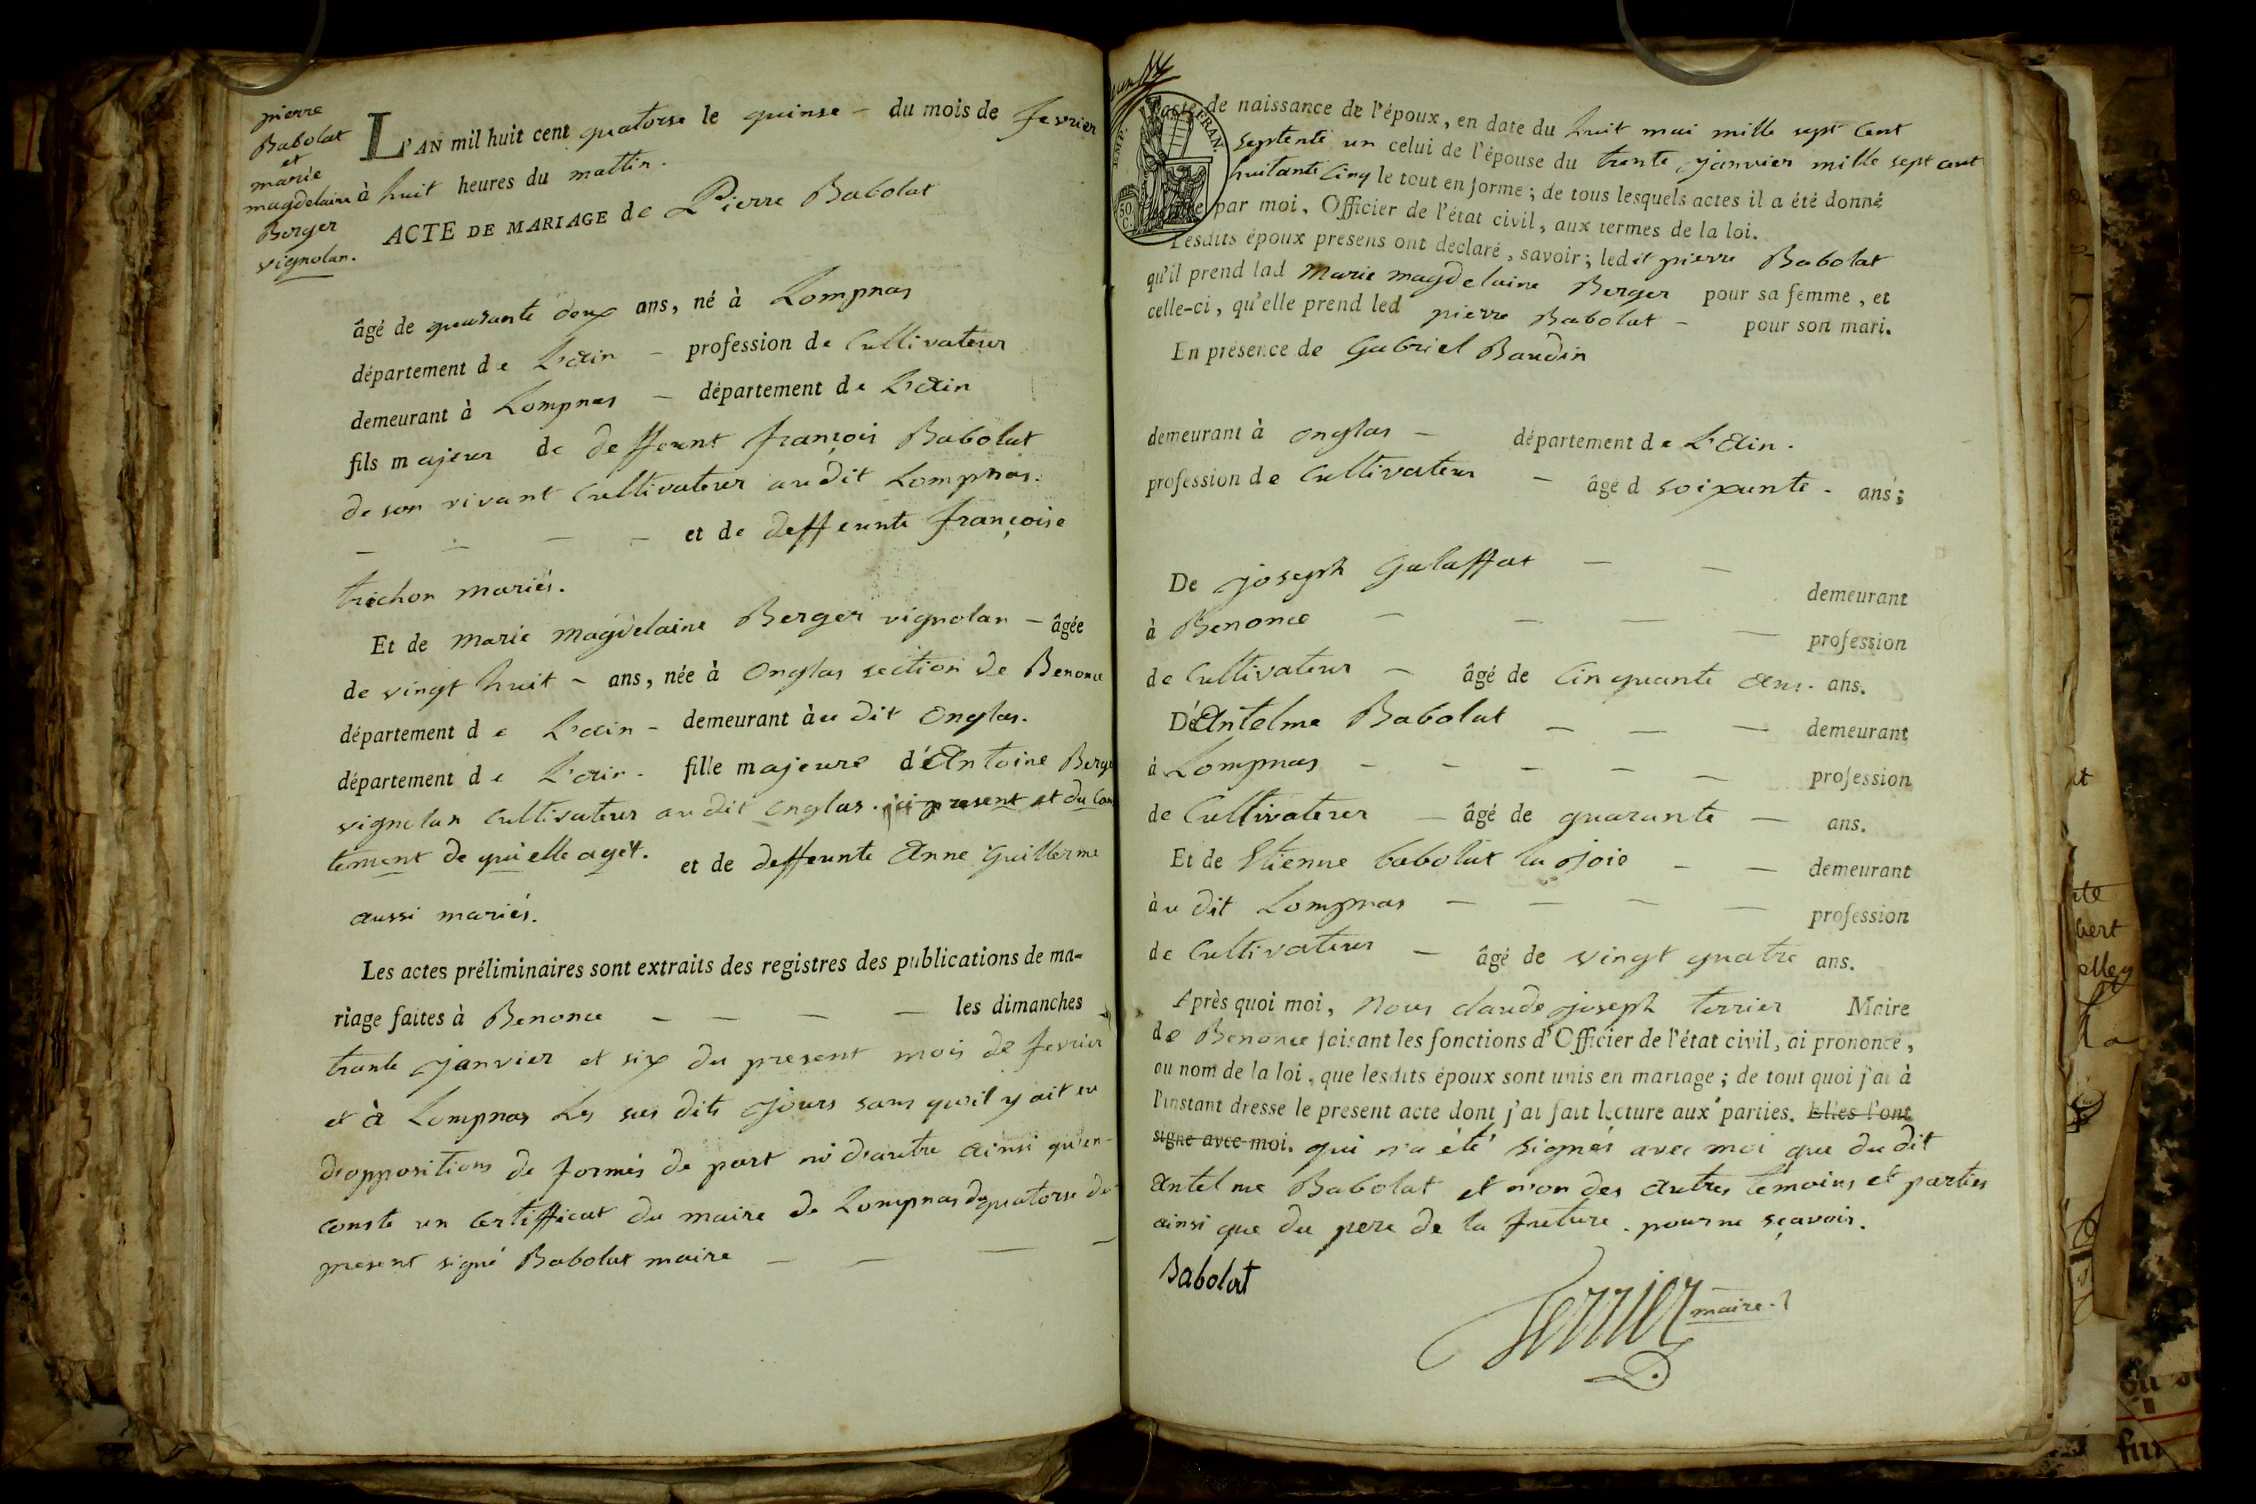 pierre
Babolat
et
marie
magdelaine
Berger
vignolan.
L'AN mil huit cent quatorse le quinse - du mois de fevrier
à huit heures du mattin.
ACTE DE MARIAGE de Pierre Babolat
âgé de quarante deux ans, né à Lompnas
département de L'ain - profession de Cultivateur
demeurant à Lompnas - département de L'ain
fils majeur de deffeunt françois Babolat
de son vivant Cultivateur au dit Lompnas.
- - - - et de deffeunte françoise
trichon mariés.
Et de marie magdelaine Berger vignolan - âgée
de vingt huit - ans, née à Onglas section de Benonce
département de L'ain - demeurant àu dit Onglas.
département de L'ain. fille majeure d'Antoine Berger
vignolan Cultivateur au dit onglas. ici present et du Con
tement de qui elle agit. et de deffeunte Anne Guillerme
aussi mariés.
Les actes préliminaires sont extraits des registres des publications de ma-
riage faites à Benonce - - - - les dimanches
trante janvier et six du present mois de fevrier
et à Lompnas Les sus dits jours sans qu'il y ait eu
d'oppositions de formés de part ni d'autre ainsi qu'en
conste un Certifficat du maire de Lompnas du quatorse du
present signé Babolat maire - - - -
EMP. FRAN.
50 C.
acte de naissance de l'époux, en date du huit mai mille sept Cent
septente un celui de l'épouse du trente janvier mille sept cent
huitante Cinq le tout en forme; de tous lesquels actes il a été donné
par moi, Officier de l'état civil, aux termes de la loi.
Lesdits époux présens ont déclaré, savoir; ledit pierre Babolat
qu'il prend lad marie magdelaine Berger pour sa femme, et
celle-ci, qu'elle prend led pierre Babolat - pour son mari.
En présence de Gabriel Baudin
demeurant à onglas - département de L'ain.
profession de Cultivateur - âgé d soixante - ans;
De joseph Galaffat - -
demeurant
à Benonce - - - -
profession
de Cultivateur - âgé de Cinquante ans. ans.
De Antelme Babolat - - - demeurant
à Lompnas - - - - - profession
de Cultivateur - âgé de quarante - ans.
Et de Etienne babolat la joie - - demeurant
àu dit Lompnas - - - - profession
de Cultivateur - âgé de vingt quatre ans.
Après quoi moi, Nous claude joseph terrier Maire
de Benonce faisant les fonctions d'Officier de l'état civil, ai prononcé,
au nom de la loi, que lesdits époux sont unis en mariage; de tout quoi j'ai à
l'instant dressé le présent acte dont j'ai fait lecture aux parties. Elles l'ont
signé avec moi. qui n'a été signés avec moi que du dit
Antelme Babolat et non des autres témoins et parties
ainsi que du pere de la future. pour ne sçavoir.
Babolat
Terrier maire